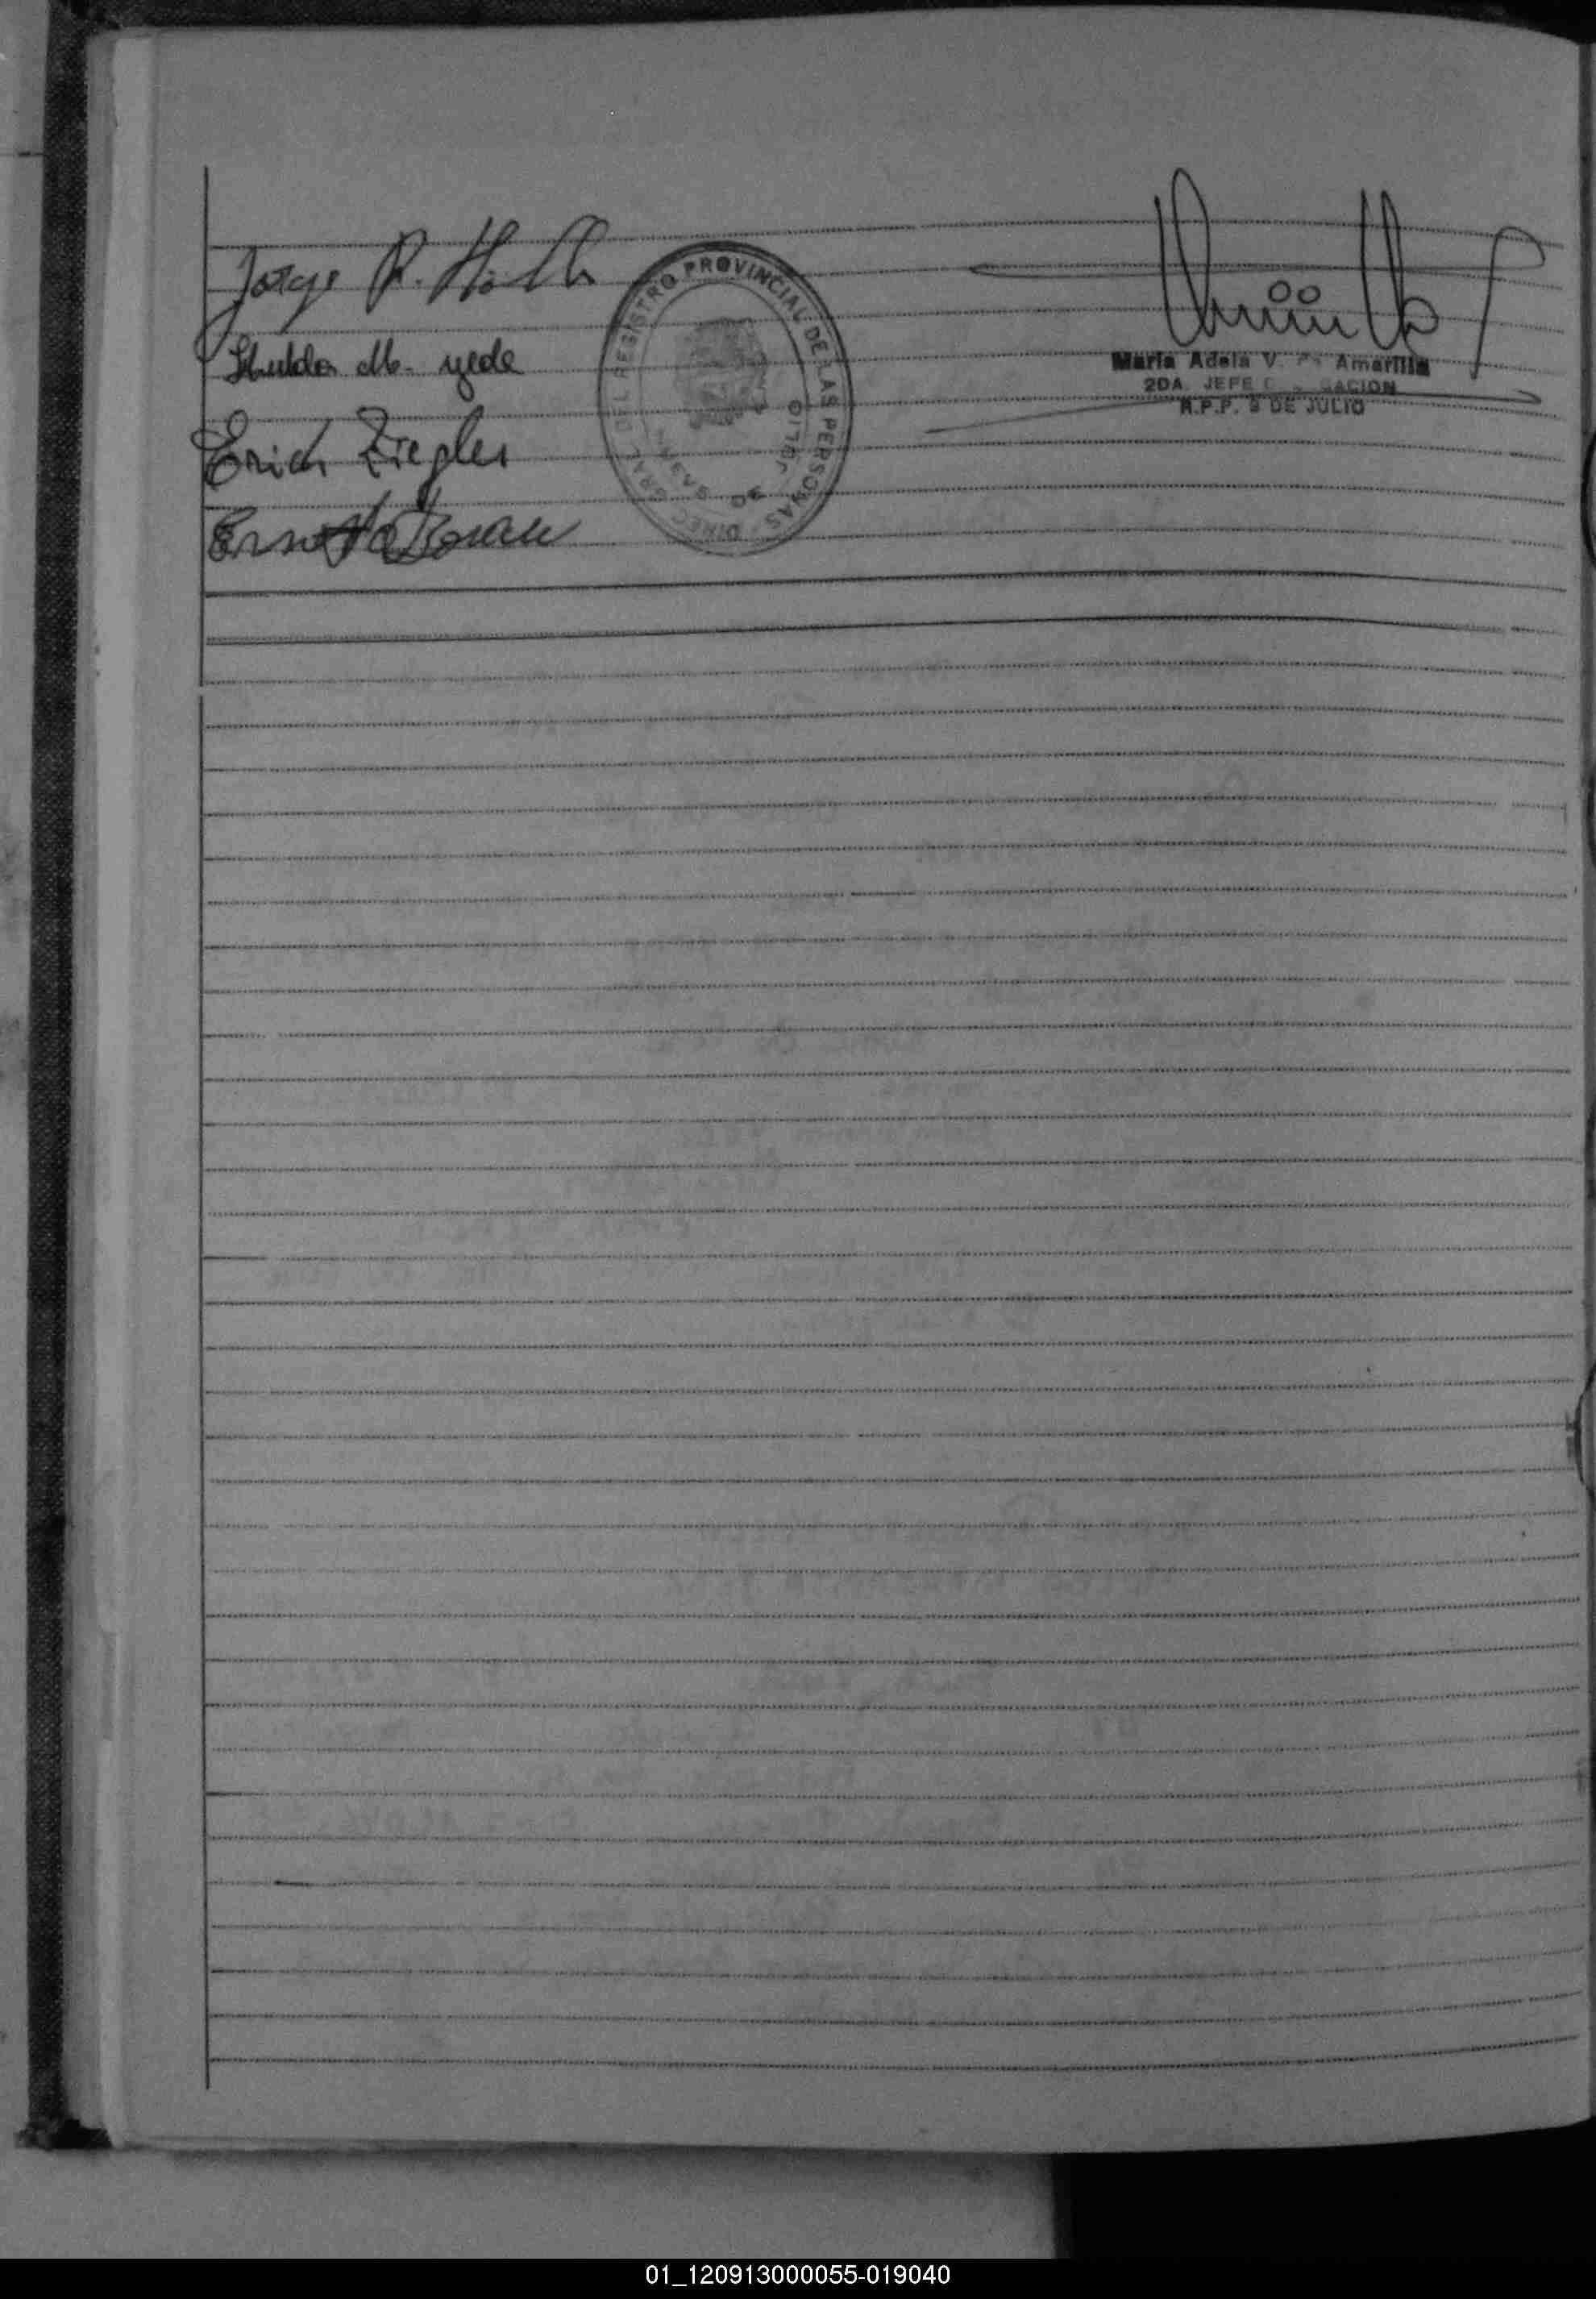 Jorge R.
Hulda M. Yede
Erich Ziegler
Ernesto Braun
DIREC. GRAL. DEL REGISTRO PROVINCIAL DE LAS PERSONAS
9 DE JULIO
Maria Adela V. de Amarilla
2DA. JEFE
R.P.P. 9 DE JULIO
01_120913000055-019040